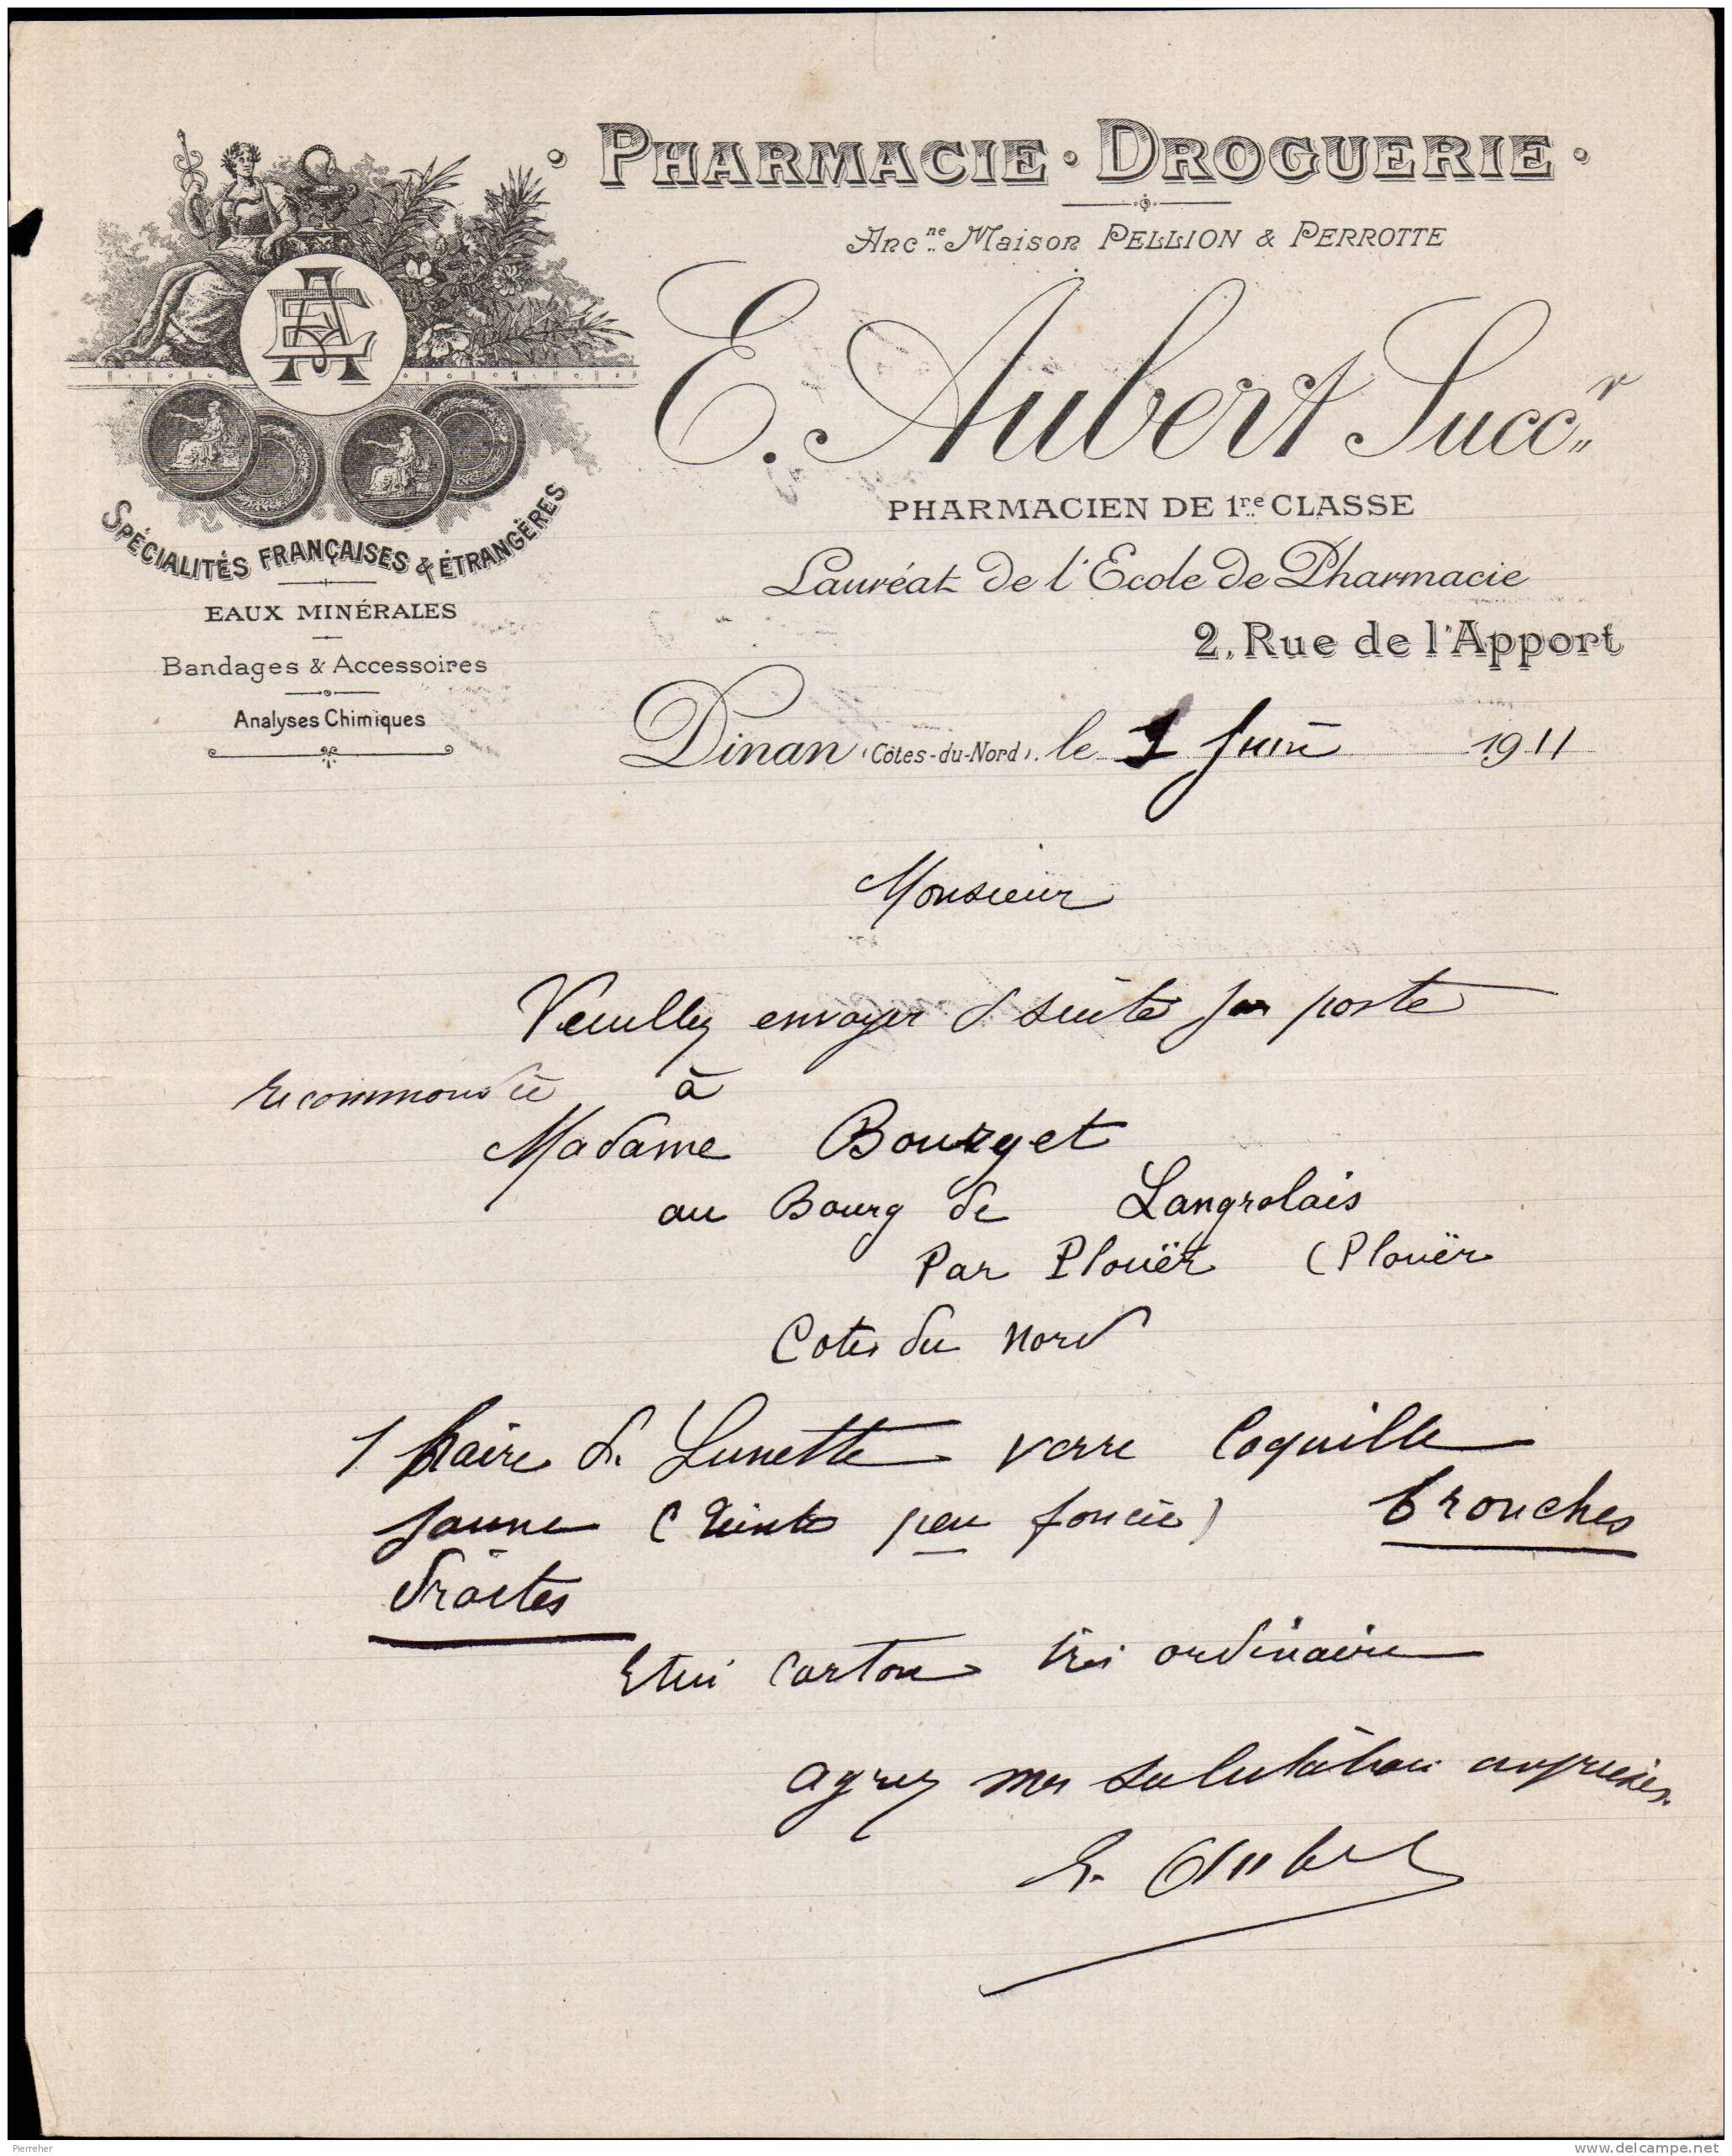 PHARMACIE · DROGUERIE
Anc.ne Maison PELLION & PERROTTE
E. Aubert Succ.r
PHARMACIEN DE 1re CLASSE
Lauréat de l'Ecole de Pharmacie
2, Rue de l'Apport
EA
SPÉCIALITÉS FRANÇAISES & ÉTRANGÈRES
EAUX MINÉRALES
Bandages & Accessoires
Analyses Chimiques
Dinan (Côtes-du-Nord), le Juin 1911
Monsieur
Veuillez envoyer d suite par poste
recommandée à
Madame Bourget
au Bourg de Langrolais
Par Plouër (Plouër
Cotes du Nord
1 paire de Lunette verre Coquille
Jaune (teinte peu foncée) branches
droites
Etui carton très ordinaire
agréez mes salutations empressées.
E. Aubert
Pierreher
www.delcampe.net